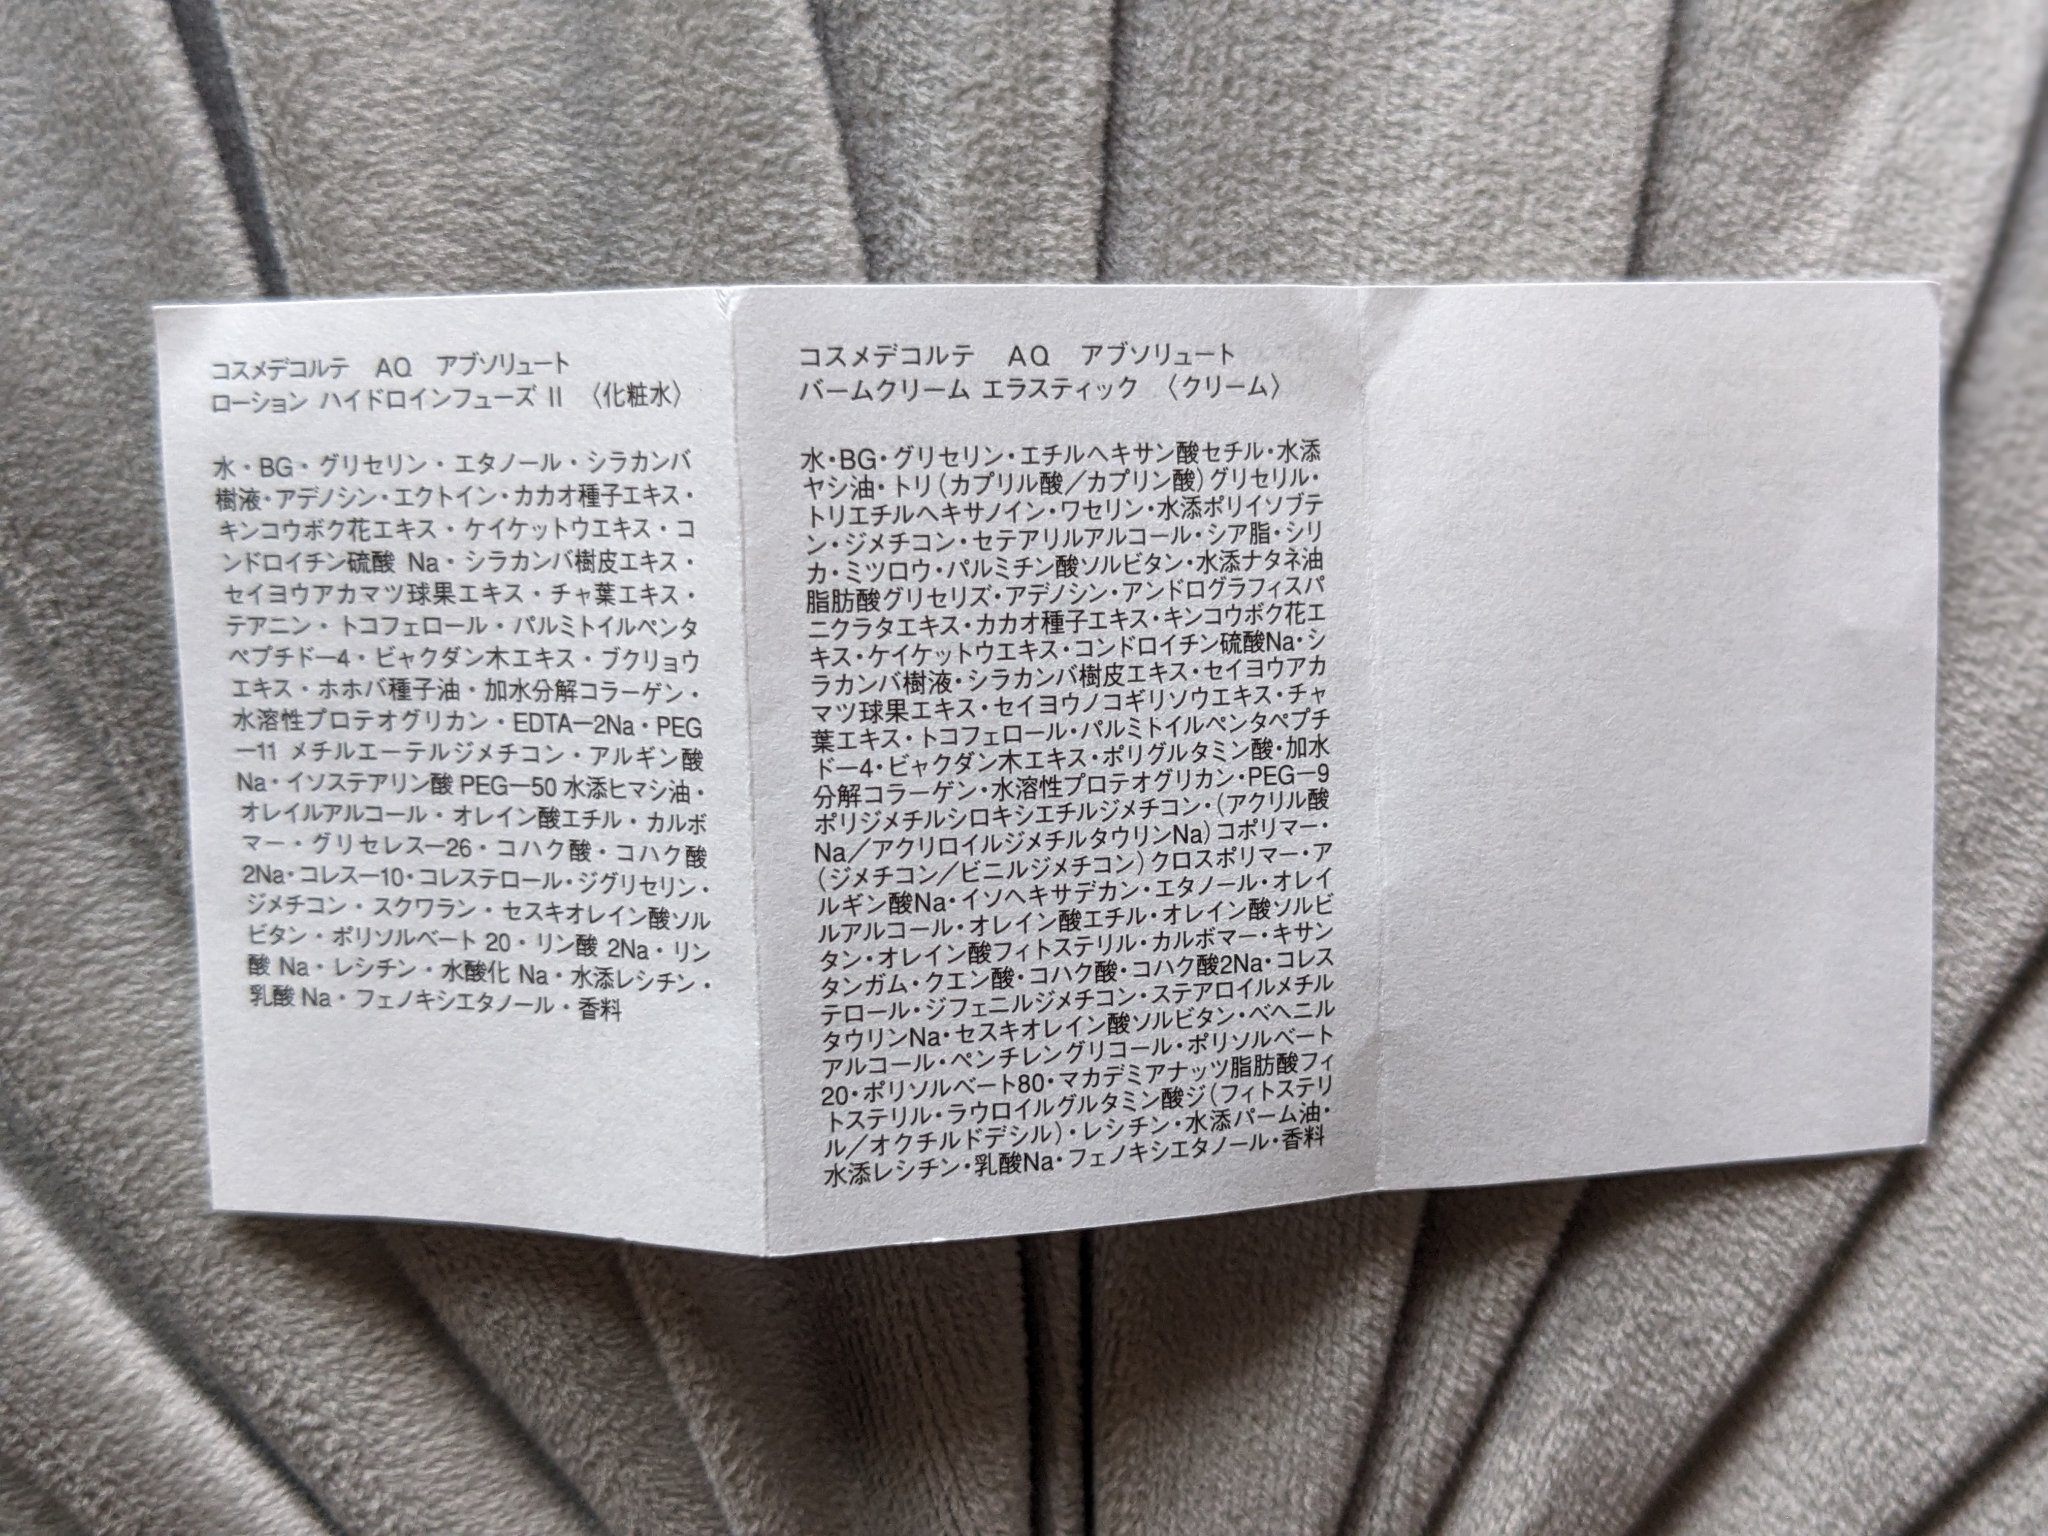 コスメデコルテ　AQ　アブソリュート
ローション ハイドロインフューズ II 〈化粧水〉
水・BG・グリセリン・エタノール・シラカンバ
樹液・アデノシン・エクトイン・カカオ種子エキス・
キンコウボク花エキス・ケイケットウエキス・コ
ンドロイチン硫酸 Na・シラカンバ樹皮エキス・
セイヨウアカマツ球果エキス・チャ葉エキス・
テアニン・トコフェロール・パルミトイルペンタ
ペプチドー4・ビャクダン木エキス・ブクリョウ
エキス・ホホバ種子油・加水分解コラーゲン・
水溶性プロテオグリカン・EDTAー2Na・PEG
ー11 メチルエーテルジメチコン・アルギン酸
Na・イソステアリン酸 PEGー50 水添ヒマシ油・
オレイルアルコール・オレイン酸エチル・カルボ
マー・グリセレスー26・コハク酸・コハク酸
2Na・コレスー10・コレステロール・ジグリセリン・
ジメチコン・スクワラン・セスキオレイン酸ソル
ビタン・ポリソルベート 20・リン酸 2Na・リン
酸 Na・レシチン・水酸化 Na・水添レシチン・
乳酸 Na・フェノキシエタノール・香料
コスメデコルテ　AQ　アブソリュート
バームクリーム エラスティック 〈クリーム〉
水・BG・グリセリン・エチルヘキサン酸セチル・水添
ヤシ油・トリ(カプリル酸／カプリン酸)グリセリル・
トリエチルヘキサノイン・ワセリン・水添ポリイソブテ
ン・ジメチコン・セテアリルアルコール・シア脂・シリ
カ・ミツロウ・パルミチン酸ソルビタン・水添ナタネ油
脂肪酸グリセリズ・アデノシン・アンドログラフィスパ
ニクラタエキス・カカオ種子エキス・キンコウボク花エ
キス・ケイケットウエキス・コンドロイチン硫酸Na・シ
ラカンバ樹液・シラカンバ樹皮エキス・セイヨウアカ
マツ球果エキス・セイヨウノコギリソウエキス・チャ
葉エキス・トコフェロール・パルミトイルペンタペプチ
ドー4・ビャクダン木エキス・ポリグルタミン酸・加水
分解コラーゲン・水溶性プロテオグリカン・PEGー9
ポリジメチルシロキシエチルジメチコン・(アクリル酸
Na／アクリロイルジメチルタウリンNa)コポリマー・
(ジメチコン／ビニルジメチコン)クロスポリマー・ア
ルギン酸Na・イソヘキサデカン・エタノール・オレイ
ルアルコール・オレイン酸エチル・オレイン酸ソルビ
タン・オレイン酸フィトステリル・カルボマー・キサン
タンガム・クエン酸・コハク酸・コハク酸2Na・コレス
テロール・ジフェニルジメチコン・ステアロイルメチル
タウリンNa・セスキオレイン酸ソルビタン・ベヘニル
アルコール・ペンチレングリコール・ポリソルベート
20・ポリソルベート80・マカデミアナッツ脂肪酸フィ
トステリル・ラウロイルグルタミン酸ジ(フィトステリ
ル／オクチルドデシル)・レシチン・水添パーム油・
水添レシチン・乳酸Na・フェノキシエタノール・香料